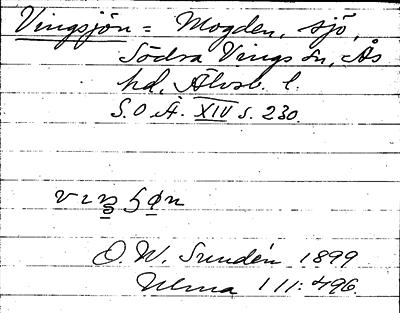 Vingsjön = Mogden, sjö,
Södra Vings sn, Ås
hd, Älvsb. l.
S.O.Ä. XIV s. 230.
O.W. Sundén 1899
Ulma 111:496.